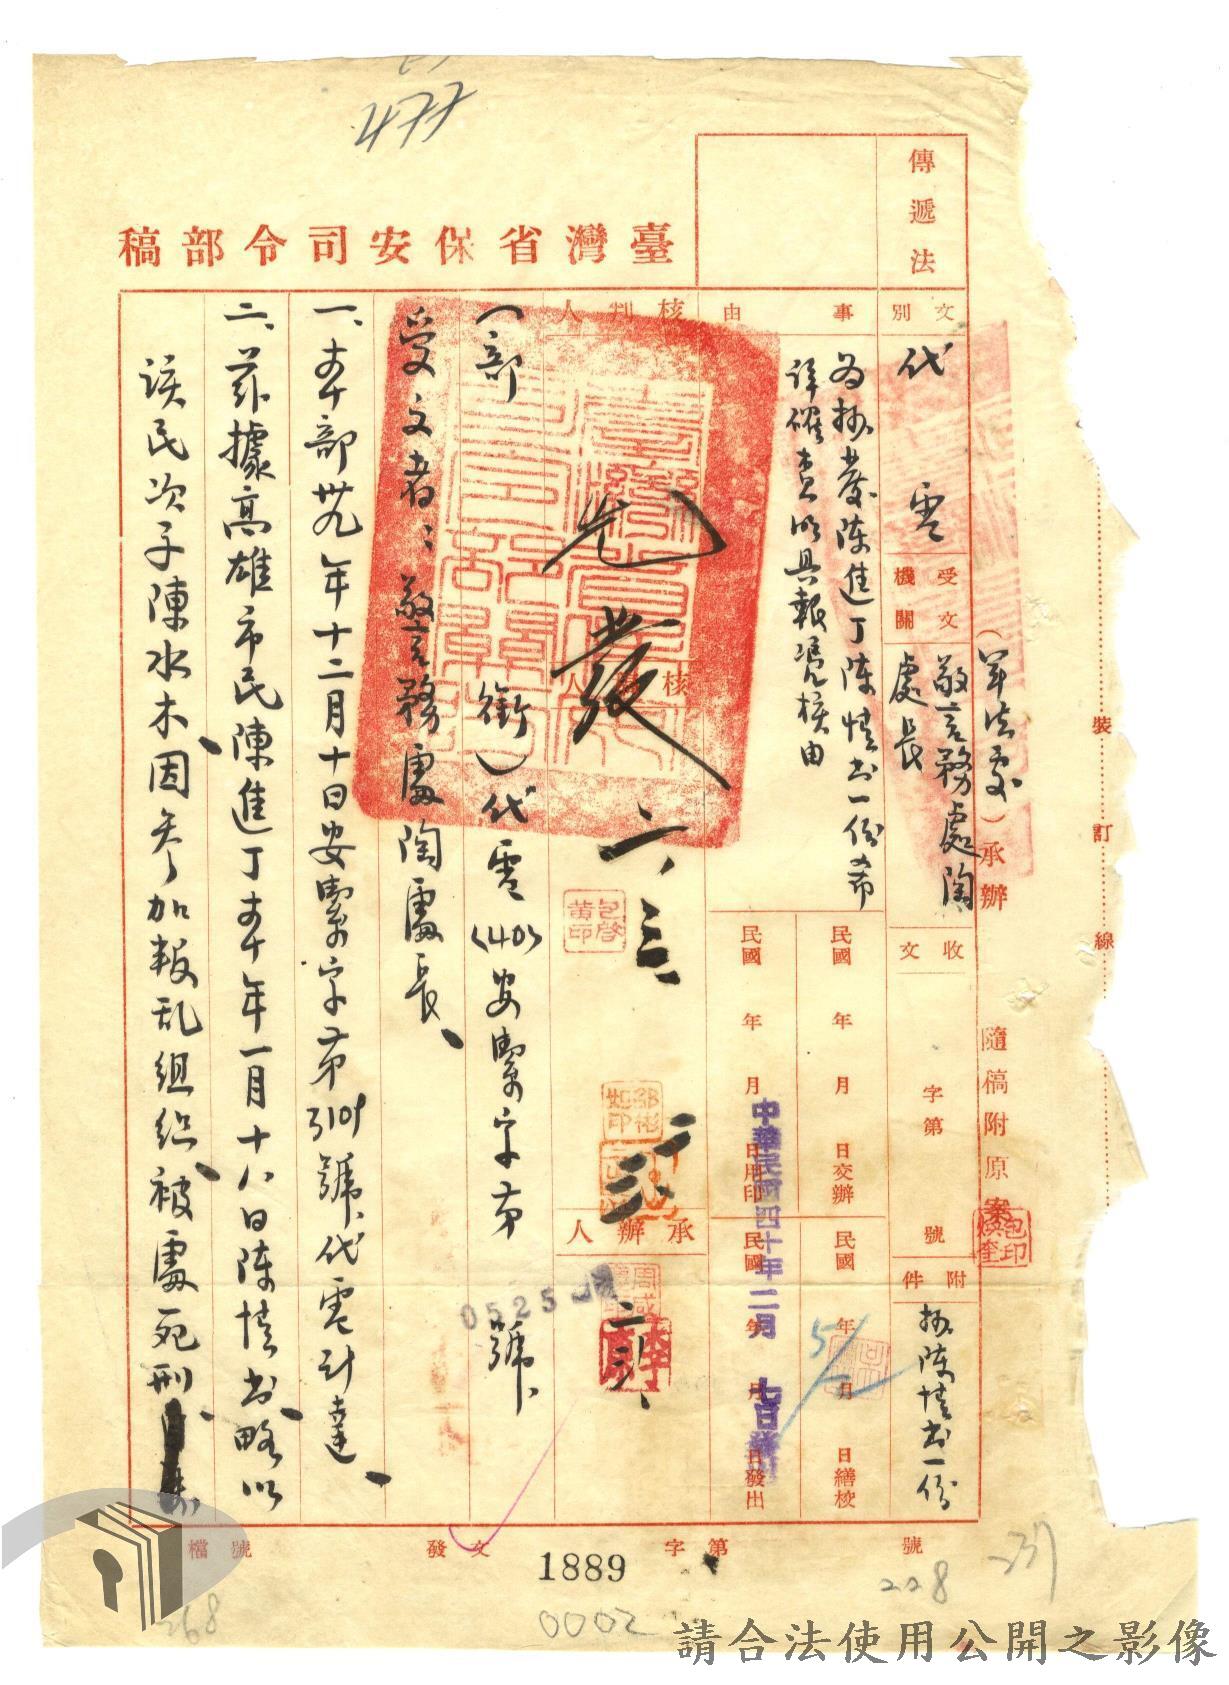 477
臺灣省保安司令部稿
傳遞法
文別
代電
受文機關
警務處陶處長
收文
字第
號
附件
抄陳情書一份
(軍法處)承辦
隨稿附原案
裝
訂
線
事由
為抄發陳進丁陳情書一份希
詳確查明具報憑核由
民國 年 月 日交辦
民國 年 月 日繕校
民國 年 月 日用印
民國 年 月 日發出
中華民國四十年二月 七日發出
核判人
先發
二、三
承辦人
0525
(部 銜)代電(40)安潔字第 號
受文者:警務處陶處長、
一、本部卅九年十二月十日安潔字第3101號代電計達、
二、茲據高雄市民陳進丁本年一月十八日陳情書略以
該民次子陳水木因參加叛乱組織被處死刑、
檔號
發文
字第
號
1889
0002
228
268
請合法使用公開之影像